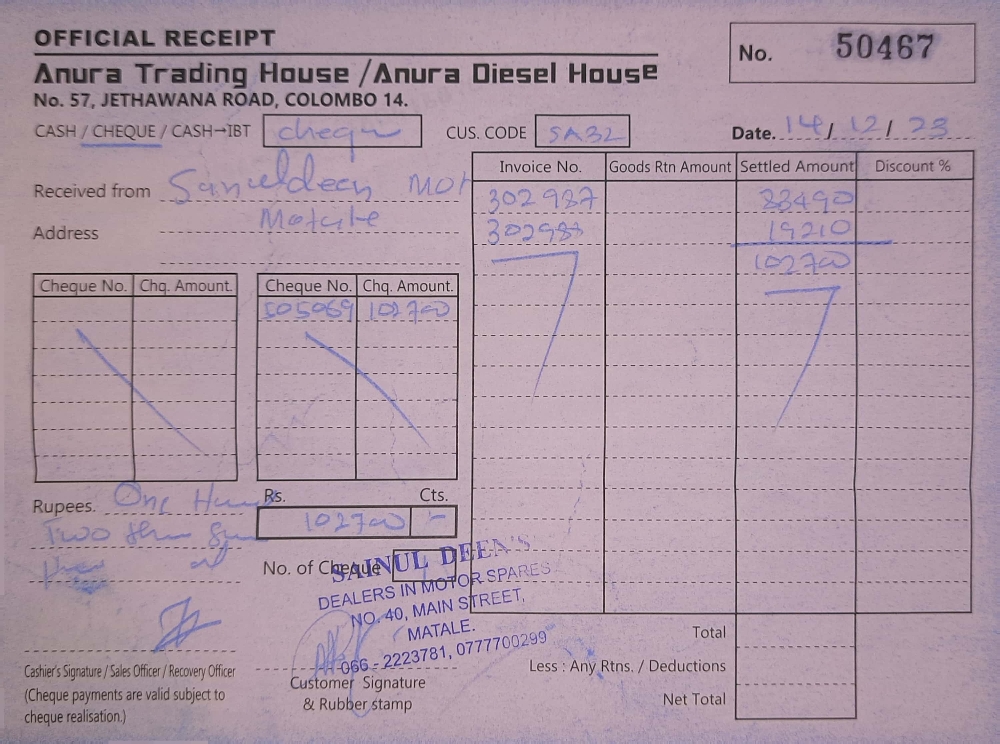 OFFICIAL RECEIPT
Anura Trading House / Anura Diesel House
No. 57, JETHAWANA ROAD, COLOMBO 14.
No. 50467
CASH / CHEQUE / CASH→IBT
CUS. CODE SA32
Date. 14/ 12/ 23
Received from Sainuldeen Mot
Address Matale
Invoice No. Goods Rtn Amount Settled Amount Discount %
302987 83490
302988 19210
102700
Cheque No. Chq. Amount. Cheque No. Chq. Amount.
505069 102700
Rupees. One Hund
Two
Rs. Cts.
102700 -
No. of Cheque
SAINUL DEEN'S
DEALERS IN MOTOR SPARES
NO. 40, MAIN STREET,
MATALE.
066 - 2223781, 0777700299
Cashier's Signature / Sales Officer / Recovery Officer
(Cheque payments are valid subject to
cheque realisation.)
Customer Signature
& Rubber stamp
Total
Less : Any Rtns. / Deductions
Net Total